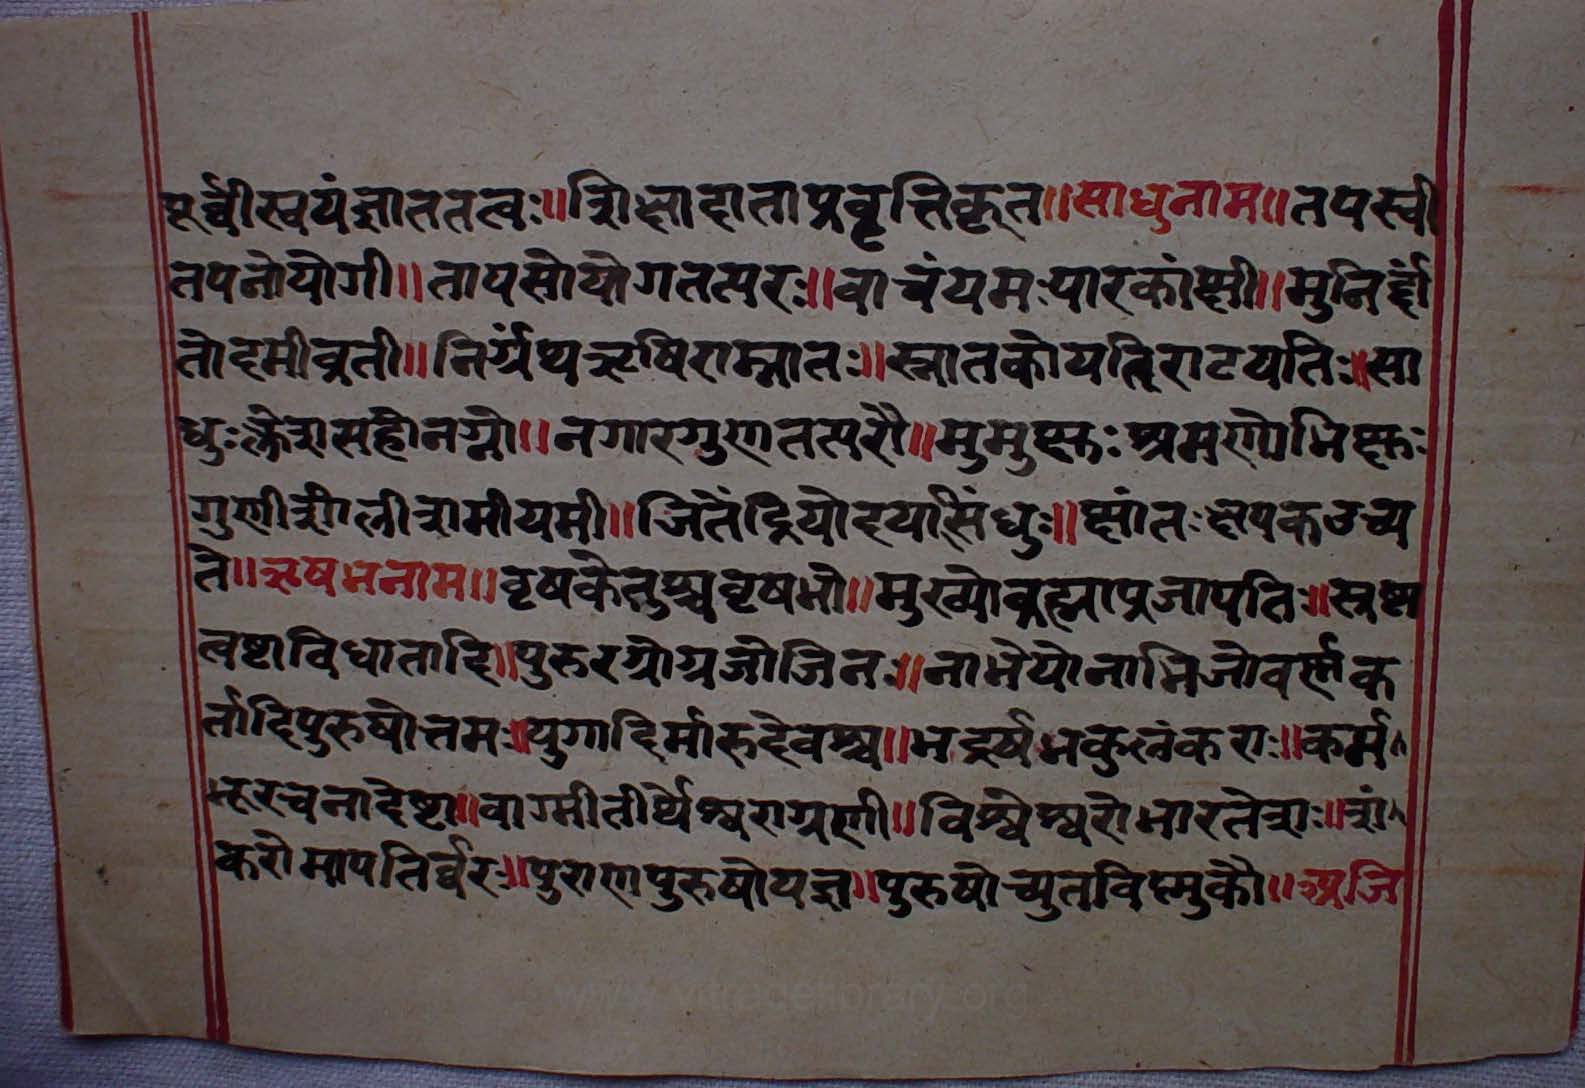 पूर्व्वीस्वयंज्ञाततत्वः॥शिक्षादाताप्रवृत्तिकृत॥साधुनाम॥तपस्वी
तपनोयोगी॥तापसोयोगतत्परः॥वाचंयमःपारकांक्षी॥मुनिर्द्दां
तोदमीव्रती॥निर्ग्रंथऋषिराम्नातः॥स्नातकोयतिराटयतिः॥सा
धुःक्लेशसहोनग्नो॥नगारगुणतत्परौ॥मुमुक्षुःश्रमणोभिक्षुः
गुणीशीलीशमीयमी॥जितेंद्रियोदयासिंधुः॥क्षांतःक्षपकउच्य
ते॥ऋषभनाम॥वृषकेतुश्चवृषभो॥मुख्योब्रह्माप्रजापतिः॥स्रष्टा
त्वष्टाविधातादि॥पुरुरग्रोग्रजोजिनः॥नाभेयोनाभिजोवर्णक
र्तादिपुरुषोत्तमः॥युगादिर्मारुदेवश्च॥भद्रर्षभकुलंकराः॥कर्म
भूरचनादेष्टा॥वाग्मीतीर्थेश्वराग्रणी॥विश्वेश्वरोभारतेशः॥शं
करोमापतिर्व्वरः॥पुराणपुरुषोयज्ञ॥पुरुषोच्युतविष्णुकौ॥अजि
www.vitragelibrary.org